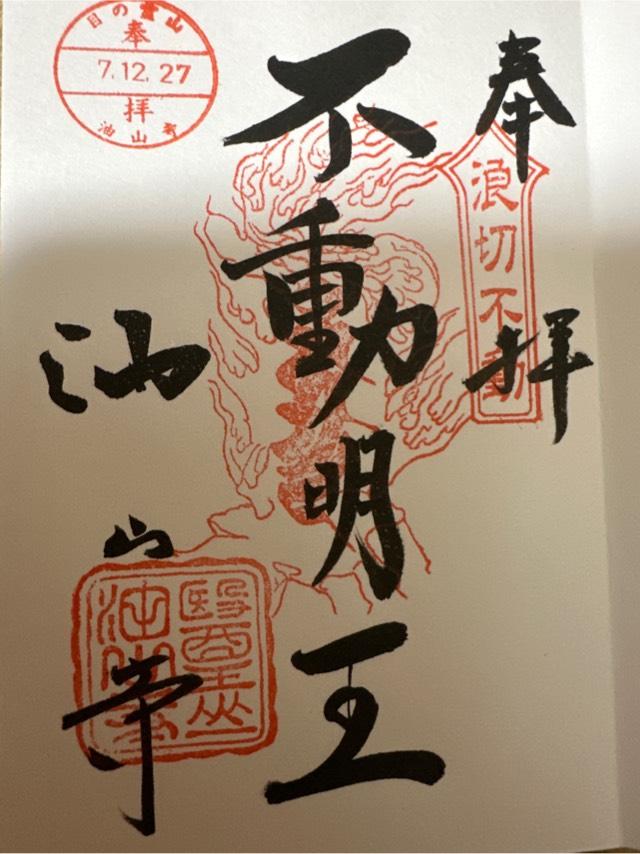 奉拝
浪切不動
不動明王
油山寺
目の霊山
奉拝
7.12.27
油山寺
醫王山
油山寺